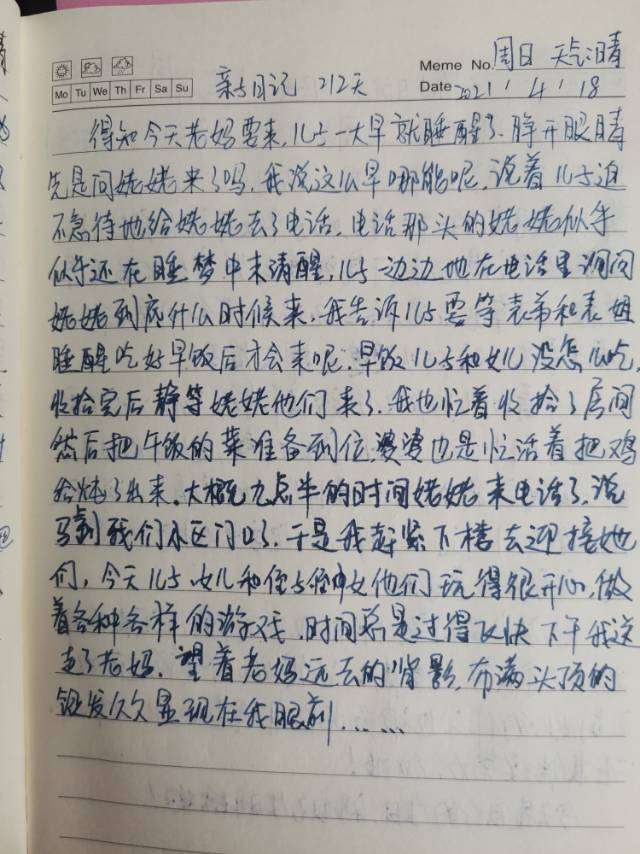 Meme No. 周日 天气:晴
Mo Tu We Th Fr Sa Su
亲子日记 212天
Date 2021 ' 4 ' 18
得知今天老妈要来,儿子一大早就睡醒了.睁开眼睛
先是问姥姥来了吗,我说这么早哪能呢,说着儿子迫
不急待地给姥姥去了电话,电话那头的姥姥似乎
似乎还在睡梦中未清醒,儿子一边边地在电话里询问
姥姥到底什么时候来,我告诉儿子要等表弟和表姐
睡醒吃好早饭后才会来呢.早饭儿子和女儿没怎么吃,
收拾完后静等姥姥他们来了.我也忙着收拾了房间
然后把午饭的菜准备到位,婆婆也是忙活着把鸡
给炖了出来.大概九点半的时间姥姥来电话了,说
马到我们小区门口了.于是我赶紧下楼去迎接她
们,今天儿子女儿和侄子侄女他们玩得很开心,做
着各种各样的游戏.时间总是过得飞快 下午我送
走了老妈.望着老妈远去的背影,布满头顶的
银发久久显现在我眼前……